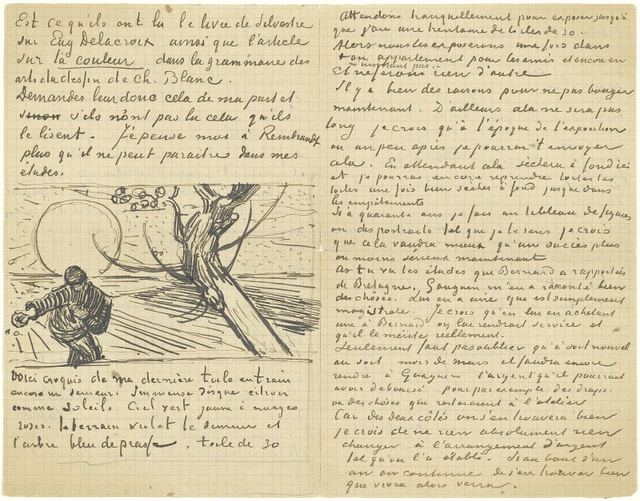 Est ce qu'ils ont lu le livre de Silvestre
sur Eug Delacroix ainsi que l'article
sur la couleur dans la grammaire des
arts du dessin de Ch. Blanc.
Demandes leur donc cela de ma part et
sinon s'ils n'ont pas lu cela qu'ils
le lisent. Je pense moi à Rembrandt
plus qu'il ne peut paraitre dans mes
études.
Voici croquis de ma dernière toile en train
encore un semeur. Immense disque citron
comme soleil. Ciel vert jaune à nuages
roses. le terrain violet le semeur et
l'arbre bleu de prusse. toile de 30
Attendons tranquillement pour exposer jusqu'à
que j'aie une trentaine de toiles de 30.
Alors nous les exposerons une fois dans
ton appartement pour les amis et encore en
et ne ferons rien d'autre
Il y a bien des raisons pour ne pas bouger
maintenant. D'ailleurs cela ne sera pas
long je crois qu'à l'époque de l'exposition
ou un peu après je pourrai t'envoyer
cela. En attendant cela sèchera à fond ici
et je pourrai encore reprendre toutes les
toiles une fois bien sèches à fond jusque dans
les empâtements
Si à quarante ans je fais un tableau de figures
ou des portraits tel que je le sens je crois
que cela vaudra mieux qu'un succès plus
ou moins serieux maintenant
As tu vu les études que Bernard a rapportées
de Bretagne, Gauguin m'en a raconté bien
des choses. Lui en a une qui est simplement
magistrale. Je crois qu'en lui en achetant
une à Bernard on lui rendrait service et
qu'il le mérite réellement.
Seulement faut pas oublier qu'à
au mois de mars il faudra encore
rendre à Gauguin l'argent qu'il pourrait
avoir deboursé pour par exemple des draps
ou des choses qui resteraient à l'atelier
Car des deux côtés on s'en trouvera bien
je crois de ne rien absolument rien
changer à l'arrangement d'argent
tel qu'on l'a établi. Si au bout d'un
an on continue de s'en trouver bien
que vivra alors verra.